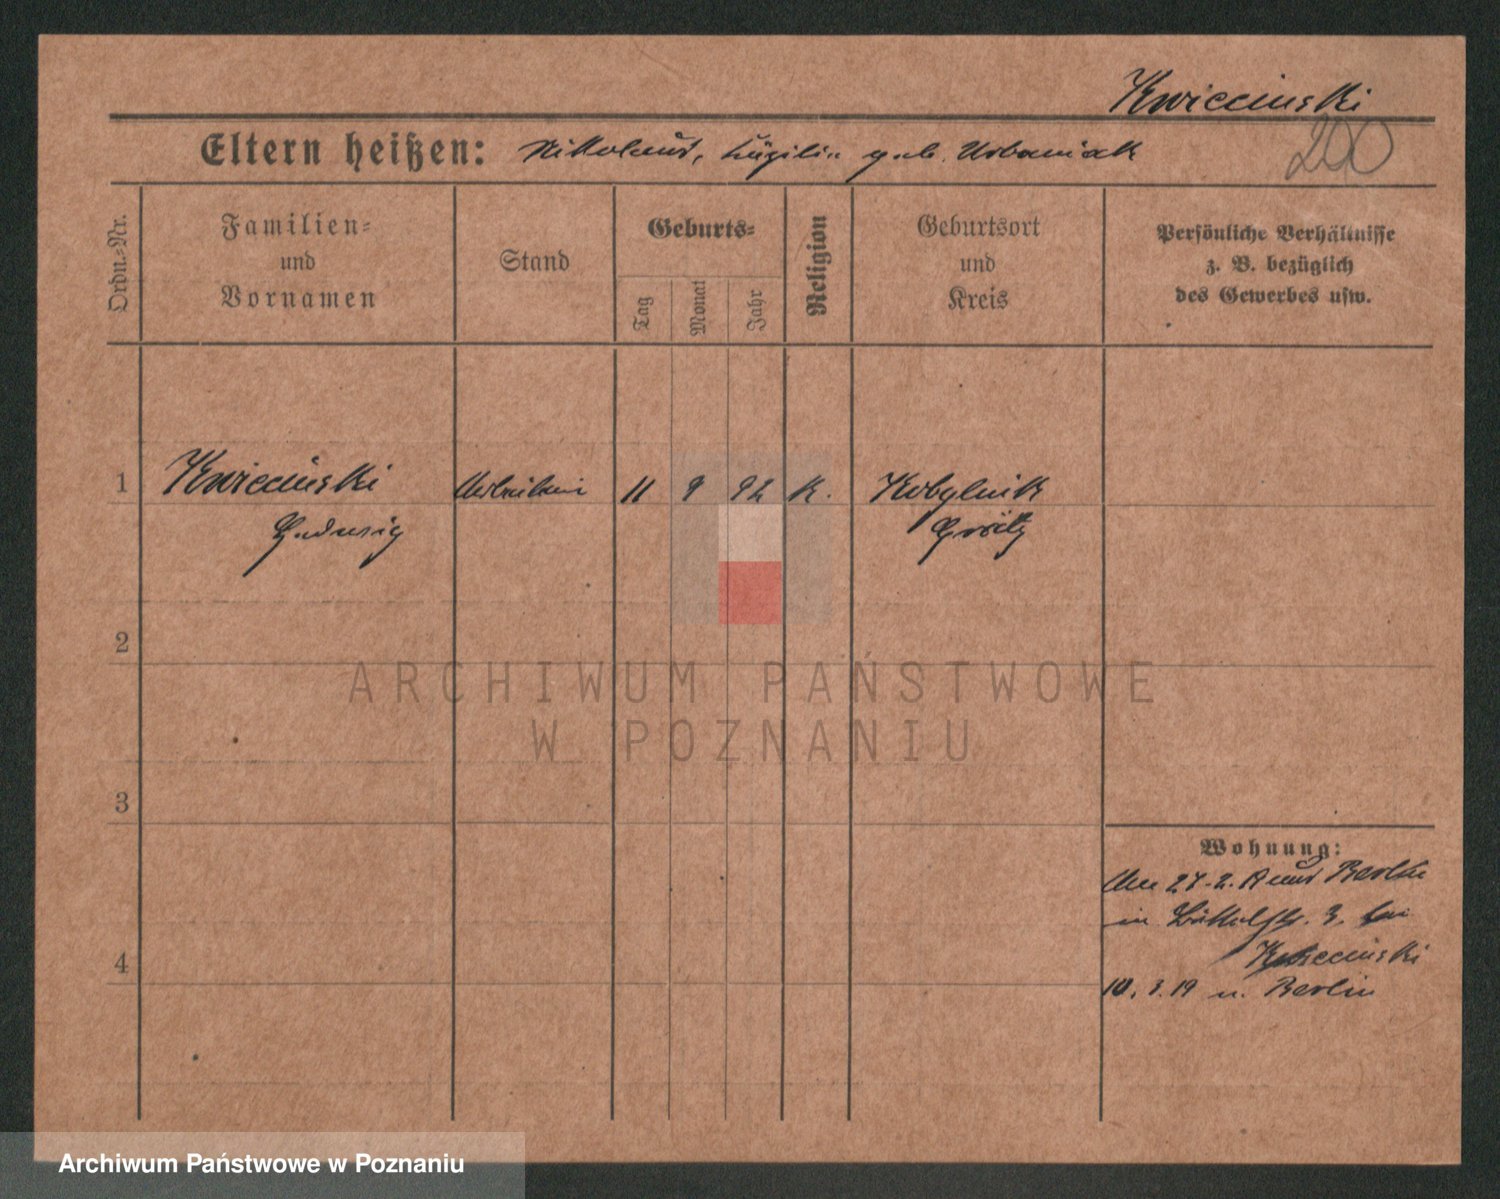 Kwiecinski
200
Eltern heißen: Nikolaus, Cäzilia geb. Urbaniak
Ordn.-Nr.
Familien-
und
Vornamen
Stand
Geburts-
Tag
Monat
Jahr
Religion
Geburtsort
und
Kreis
Persönliche Verhältnisse
z. B. bezüglich
des Gewerbes usw.
1 Kwiecinski Arbeiterin 11 9 92 K. Kobylnik
Hedwig Grätz
2
ARCHIWUM PAŃSTWOWE
W POZNANIU
3
Wohnung:
Am 27.2.19 aus Berlin
in 3. bei
Kwiecinski
4
10.3.19 n. Berlin
Archiwum Państwowe w Poznaniu